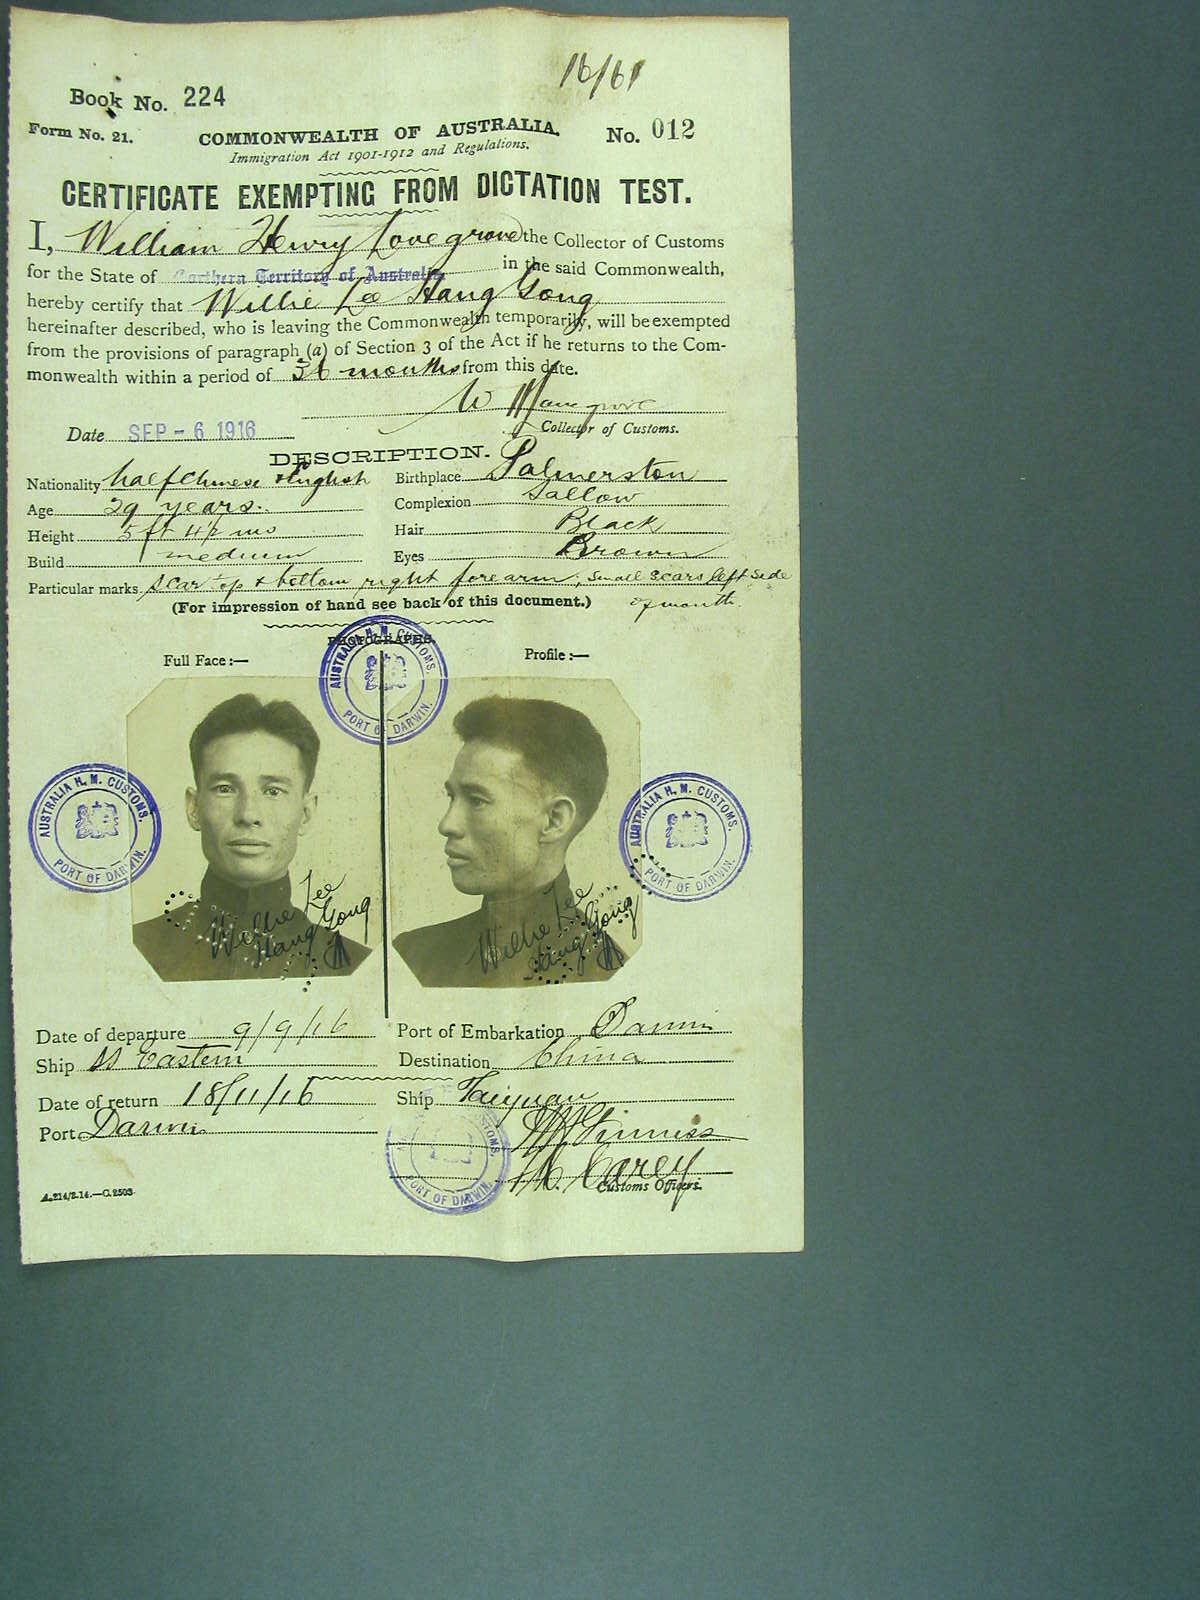 16/61
Book No. 224
Form No. 21. COMMONWEALTH OF AUSTRALIA. No. 012
Immigration Act 1901-1912 and Regulations.
CERTIFICATE EXEMPTING FROM DICTATION TEST.
I, William Henry Lovegrove the Collector of Customs
for the State of Northern Territory of Australia in the said Commonwealth,
hereby certify that Willie Lee Hang Gong
hereinafter described, who is leaving the Commonwealth temporarily, will be exempted
from the provisions of paragraph (a) of Section 3 of the Act if he returns to the Com-
monwealth within a period of 36 months from this date.
Collector of Customs.
Date SEP - 6 1916
DESCRIPTION.
Nationality half Chinese & English Birthplace Palmerston
Age 29 years. Complexion Sallow
Height 5 ft 4½ ins Hair Black
Build medium Eyes Brown
Particular marks scar top & bottom right forearm; small scars left side
of mouth.
(For impression of hand see back of this document.)
PHOTOGRAPHS.
Full Face:— Profile:—
AUSTRALIA H. M. CUSTOMS. PORT OF DARWIN.
AUSTRALIA H. M. CUSTOMS. PORT OF DARWIN.
AUSTRALIA H. M. CUSTOMS. PORT OF DARWIN.
Willie Lee Hang Gong
Willie Lee Hang Gong
Date of departure 9/9/16 Port of Embarkation Darwin
Ship SS Eastern Destination China
Date of return 18/11/16 Ship Taiyuan
Port Darwin
Carey
Customs Officers.
PORT OF DARWIN.
A.214/2.14.—C.2503